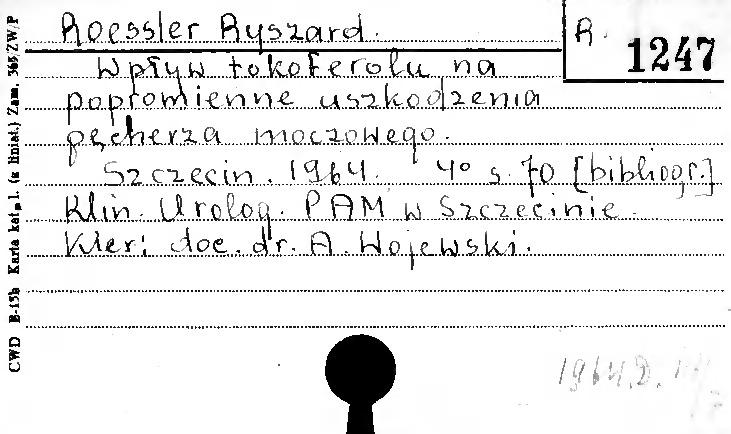 Roessler Ryszard.
R.
1247
Wpływ tokoferolu na
popromienne uszkodzenia
pęcherza moczowego.
Szczecin. 1964. 4° s. 70 [bibliogr.]
Klin. Urolog. PAM w Szczecinie.
Kier: doc. dr. A. Wojewski.
CWD B-15b Karta kat. l. (z liniat.) Zam. 365/ZW/P
1964.D.